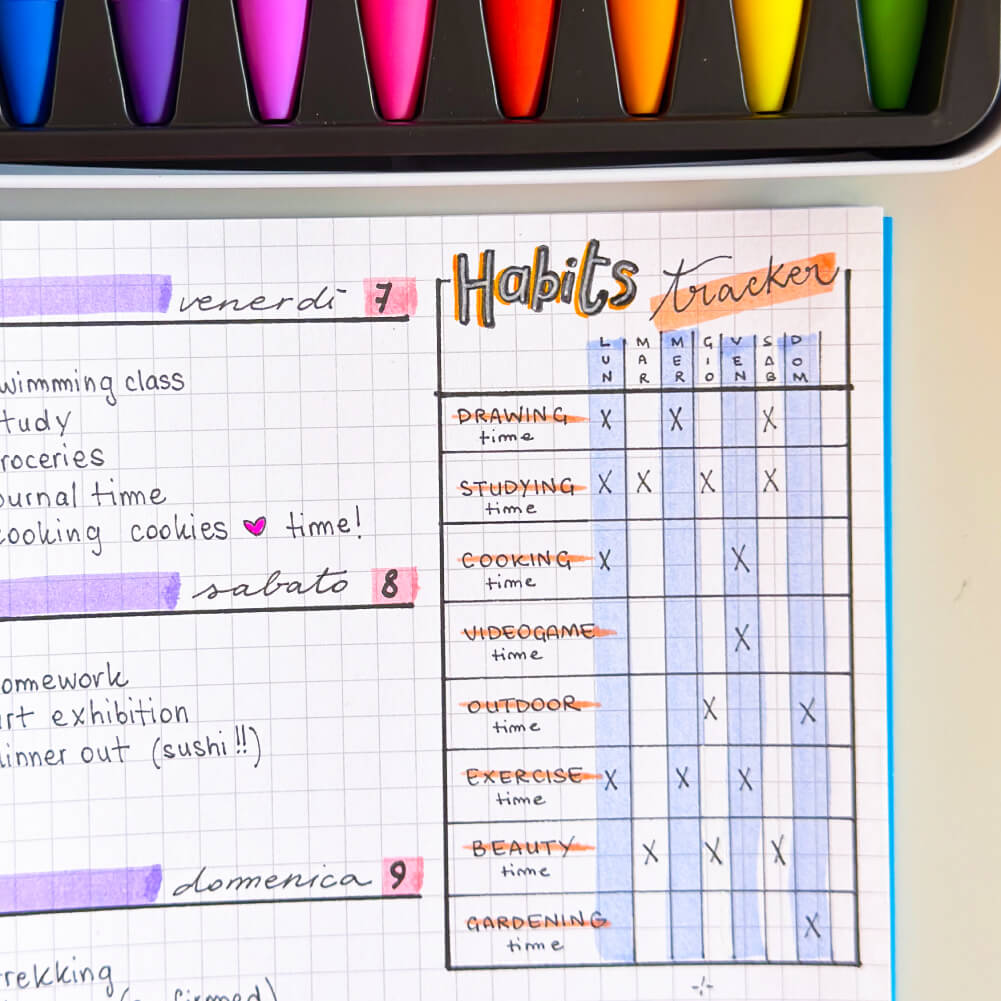 venerdì 7
wimming class
tudy
roceries
ournal time
cooking cookies time!
sabato 8
omework
rt exhibition
inner out (sushi!!)
domenica 9
rekking
Habits tracker
LUN MAR MER GIO VEN SAB DOM
DRAWING X X X
time
STUDYING X X X X
time
COOKING X X
time
VIDEOGAME X
time
OUTDOOR X X
time
EXERCISE X X X
time
BEAUTY X X X
time
GARDENING X
time